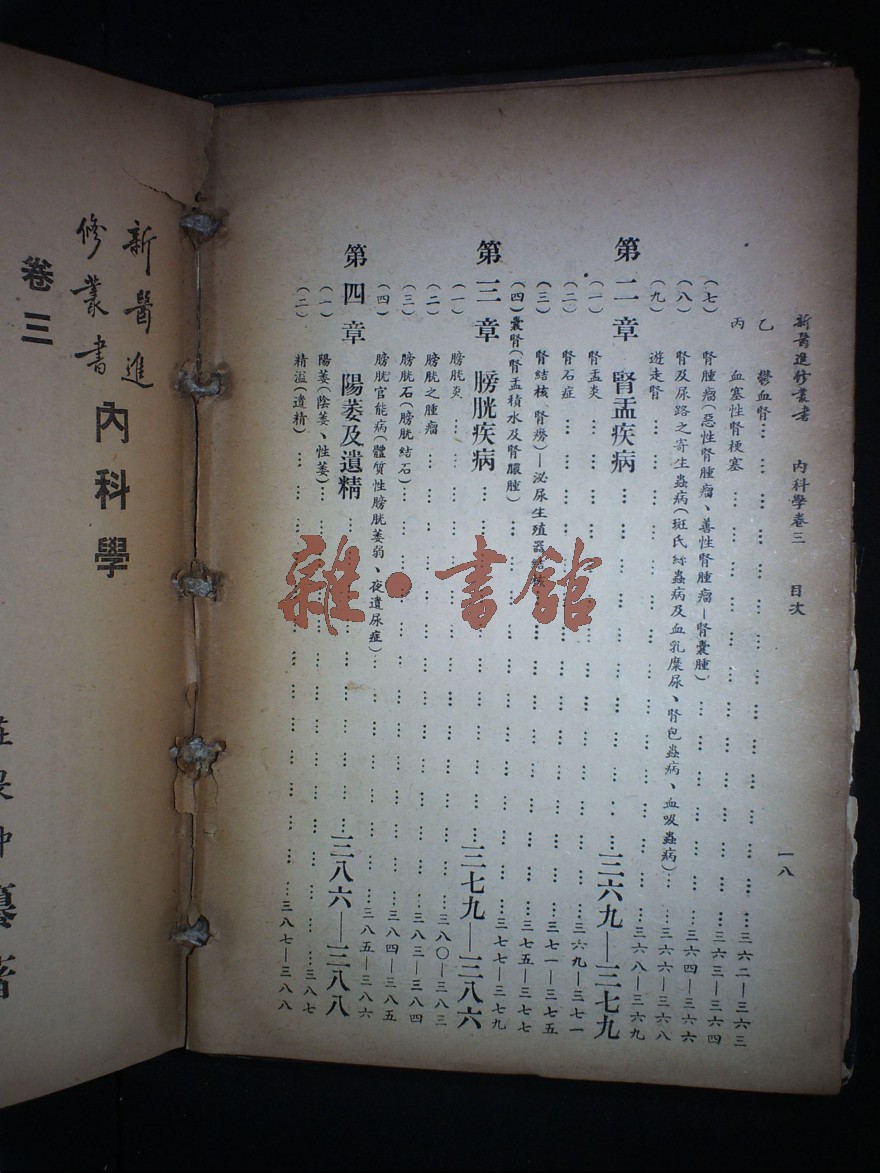 新醫進修叢書 內科學卷三 目次
一八
乙 鬱血腎…………三六二—三六三
丙 血塞性腎梗塞…………三六三—三六四
(七) 腎腫瘤(惡性腎腫瘤、善性腎腫瘤—腎囊腫)…………三六四—三六六
(八) 腎及尿路之寄生蟲病(斑氏絲蟲病及血乳糜尿、腎包蟲病、血吸蟲病)…三六六—三六八
(九) 遊走腎…………三六八—三六九
第二章 腎盂疾病…………三六九—三七九
(一) 腎盂炎…………三六九—三七一
(二) 腎石症…………三七一—三七五
(三) 腎結核(腎癆)—泌尿生殖器結核…………三七五—三七七
(四) 囊腎(腎盂積水及腎膿腫)…………三七七—三七九
第三章 膀胱疾病…………三七九—三八六
(一) 膀胱炎…………三八〇—三八三
(二) 膀胱之腫瘤…………三八三—三八四
(三) 膀胱石(膀胱結石)…………三八四—三八五
(四) 膀胱官能病(體質性膀胱萎弱、夜遺尿症)…………三八五—三八六
第四章 陽萎及遺精…………三八六—三八八
(一) 陽萎(陰萎、性萎)…………三八七
(二) 精溢(遺精)…………三八七—三八八
新醫進
修叢書
內科學
卷三
纂著
雜·書館